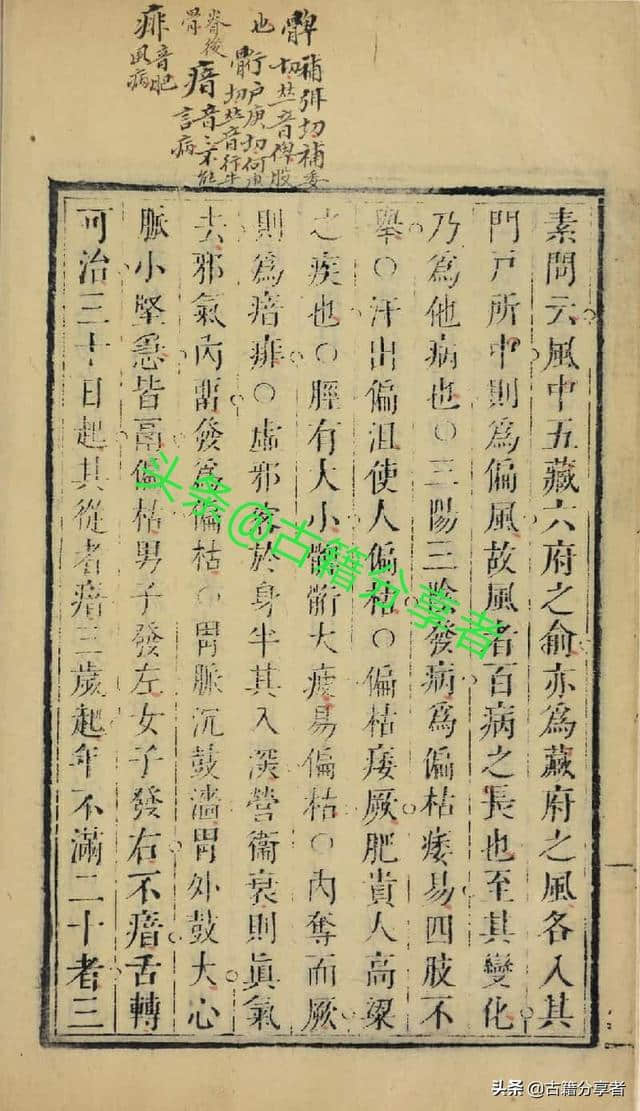 髀補弭切補委
切並音俾股
也
䯒戶庚切何庚
切並音行牛
脊後
骨
瘖音不能
言病
痱音肥
風病
素問云風中五藏六府之俞亦為藏府之風各入其
門戶所中則為偏風故風者百病之長也至其變化
乃為他病也○三陽三陰發病為偏枯痿易四肢不
舉○汗出偏沮使人偏枯○偏枯痿厥肥貴人高粱
之疾也○脛有大小髀䯒大瘦易偏枯○內奪而厥
則為瘖痱○虛邪客於身半其入深營衛衰則眞氣
去邪氣內畱發為偏枯○胃脈沉鼓濇胃外鼓大心
脈小堅急皆鬲偏枯男子發左女子發右不瘖舌轉
可治三十日起其從者瘖三歲起年不滿二十者三
头条@古籍分享者
头条 @古籍分享者